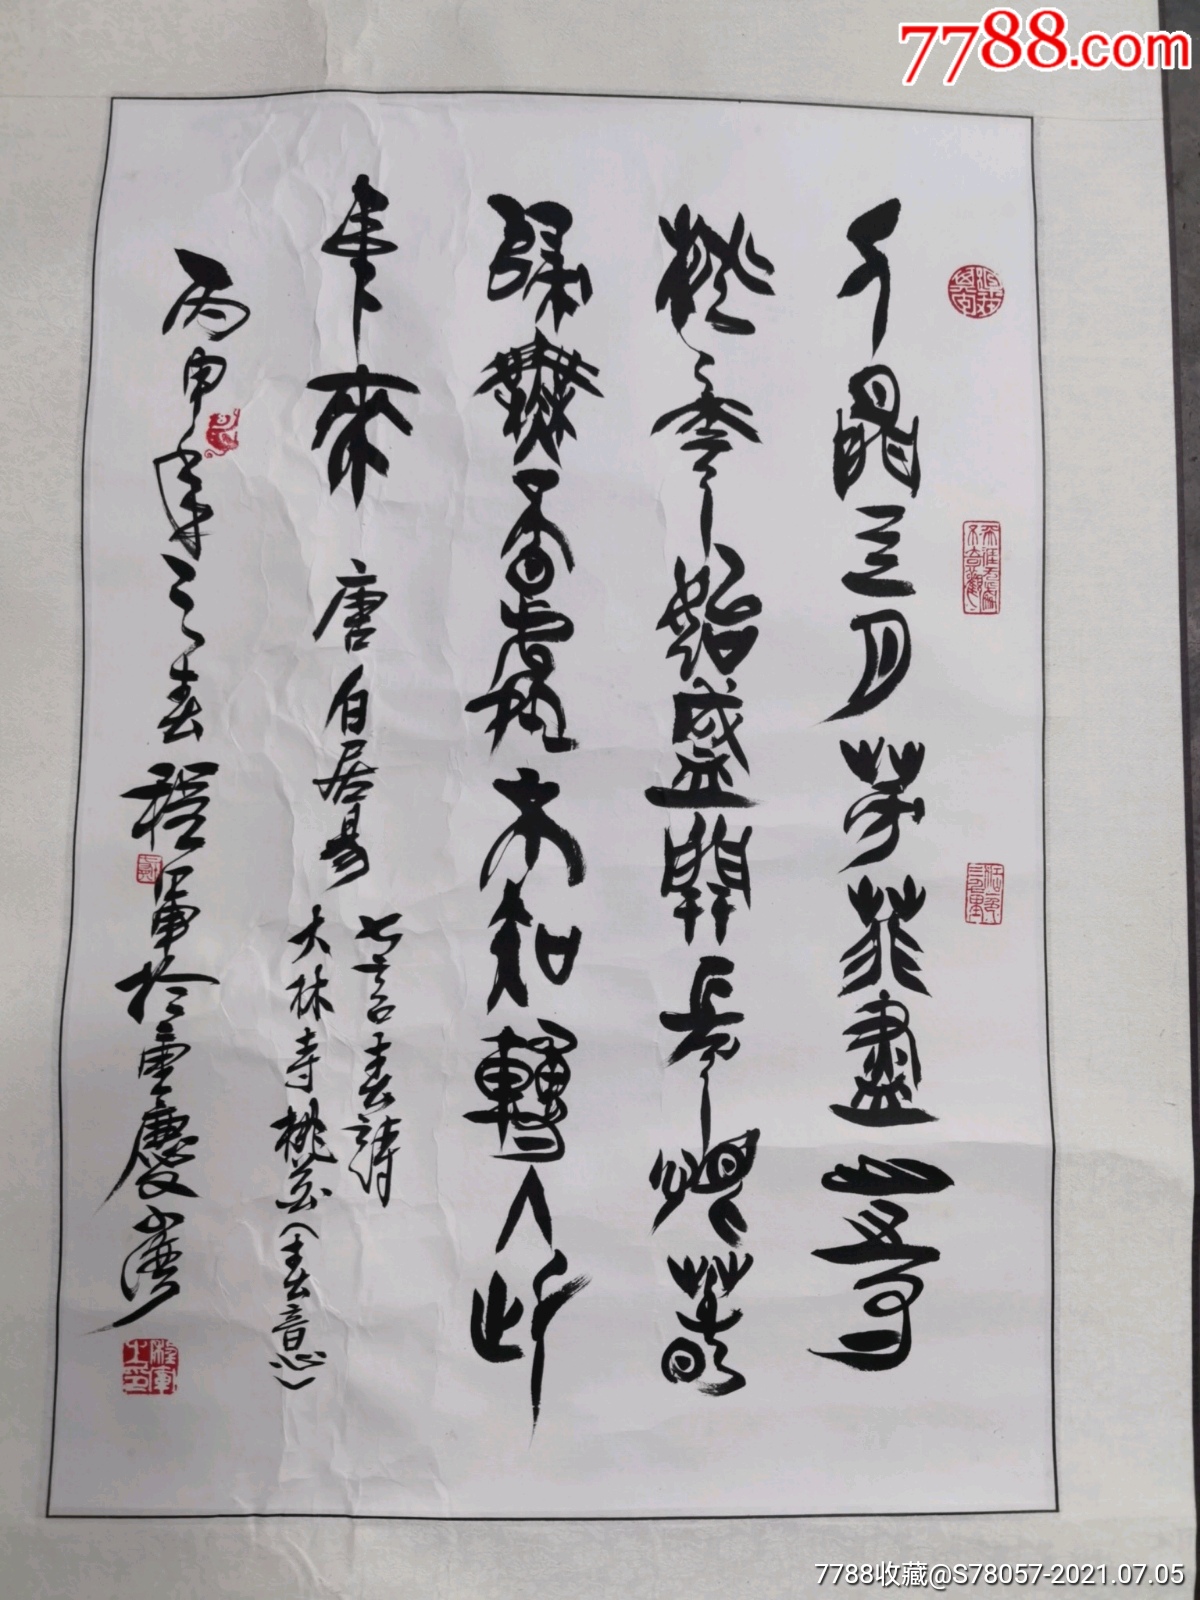 7788.com
人閒亖月芳菲盡山寺
桃華始盛開長恨春
歸無覓處不知轉入此
中來 唐白居易
七言春詩
大林寺桃花(春意)
丙申年之春程軍於重慶
程軍之印
7788收藏@S78057-2021.07.05